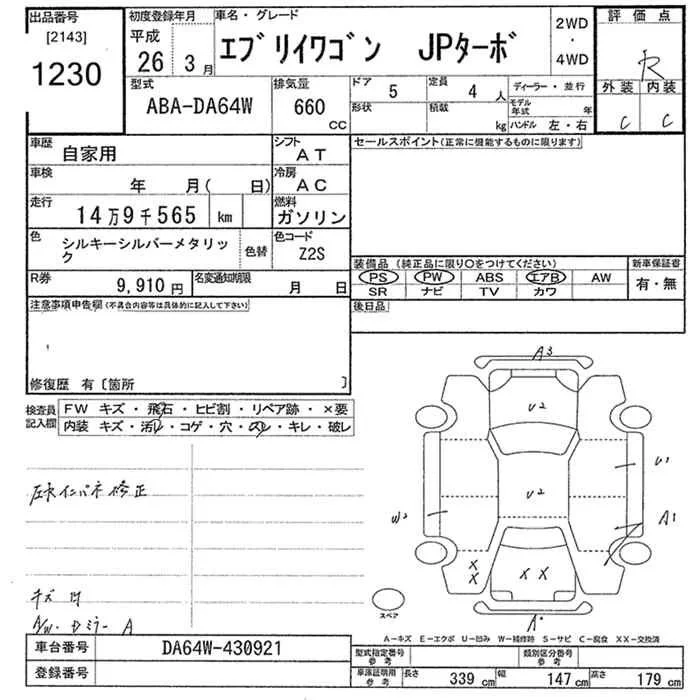 出品番号
[2143]
1230
初度登録年月
平成
26 3月
車名・グレード
エブリイワゴン JPターボ
2WD
・
4WD
評価点
R
外装 内装
C C
型式
ABA-DA64W
排気量
660
CC
ドア 5
定員 4 人
ディーラー・並行
形状
積載
kg
モデル年式 年
ハンドル 左・右
車歴
自家用
シフト
AT
セールスポイント(正常に機能するものに限ります)
車検
年 月( 日)
冷房
AC
走行
14万9千565 km
燃料
ガソリン
色
シルキーシルバーメタリック
色替
色コード
Z2S
装備品(純正品に限り○をつけてください)
新車保証書
PS PW ABS エアB AW
有・無
SR ナビ TV カワ
R券
9,910円
名変通知期限
月 日
後日品
注意事項申告欄(不具合内容等は具体的に記入して下さい)
修復歴 有〔箇所 〕
検査員
記入欄
FW キズ・飛石・ヒビ割・リペア跡・×要
内装 キズ・汚レ・コゲ・穴・スレ・キレ・破レ
A3
U2
U1
U2
W2
A1
修正
キズ
A/W・ミラー A
X X
X X
A
スペア
A-キズ E-エクボ U-凹み W-補修跡 S-サビ C-腐食 XX-交換済
車台番号
DA64W-430921
登録番号
型式指定番号
参考
類別区分番号
参考
車庫証明用
参考
長さ 339 cm
幅 147 cm
高さ 179 cm